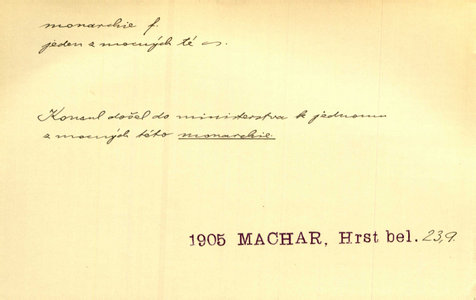 monarchie f.
jeden z mocných té m.
Konsul došel do ministerstva k jednomu
z mocných této monarchie
1905 MACHAR, Hrst bel. 23,9.